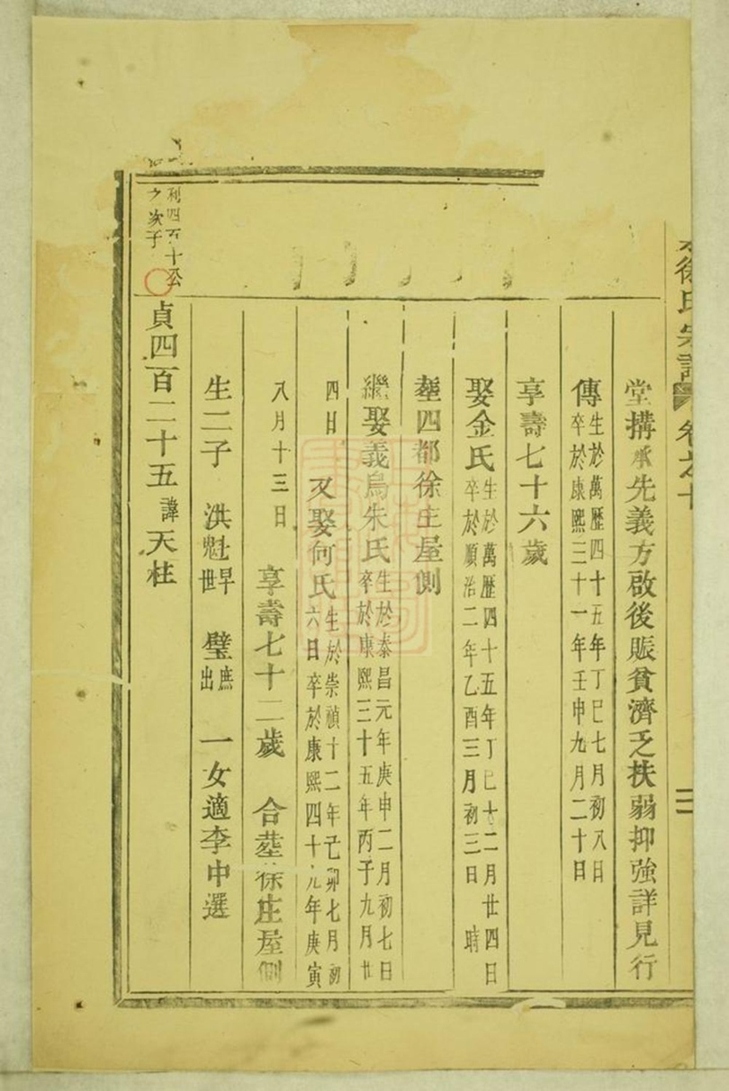 徐氏宗譜 卷之十
堂搆承先義方啟後賑貧濟乏扶弱抑強詳見行
傳生於萬歷四十五年丁巳七月初八日
卒於康熙三十一年壬申九月二十日
享壽七十六歲
娶金氏生於萬歷四十五年丁巳十二月廿四日
卒於順治二年乙酉三月初三日
塟四都徐庄屋側
繼娶義烏朱氏生於泰昌元年庚申二月初七日
卒於康熙三十五年丙子九月廿
四日 又娶何氏生於崇禎十二年己卯七月初
六日卒於康熙四十九年庚寅
八月十三日 享壽七十二歲 合塟徐庄屋側
生二子 洪魁早世 璧庶出 一女適李中選
利四百十公
之次子
貞四百二十五諱天柱